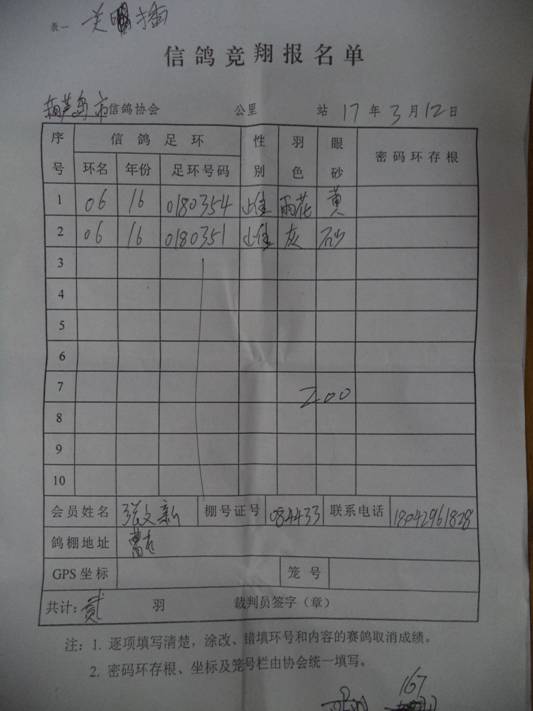 表一
信鸽竞翔报名单
葫芦岛市信鸽协会 公里 站 17 年 3 月 12 日
序号 信鸽足环 性别 羽色 眼砂 密码环存根
环名 年份 足环号码
1 06 16 0180354 雄 雨花 黄
2 06 16 0180351 雄 灰 砂
3
4
5
6
7 200
8
9
10
会员姓名 张文新 棚号证号 084433 联系电话 18042961828
鸽棚地址
GPS坐标 笼号
共计：贰 羽 裁判员签字（章）
注：1. 逐项填写清楚，涂改、错填环号和内容的赛鸽取消成绩。
2. 密码环存根、坐标及笼号栏由协会统一填写。
167